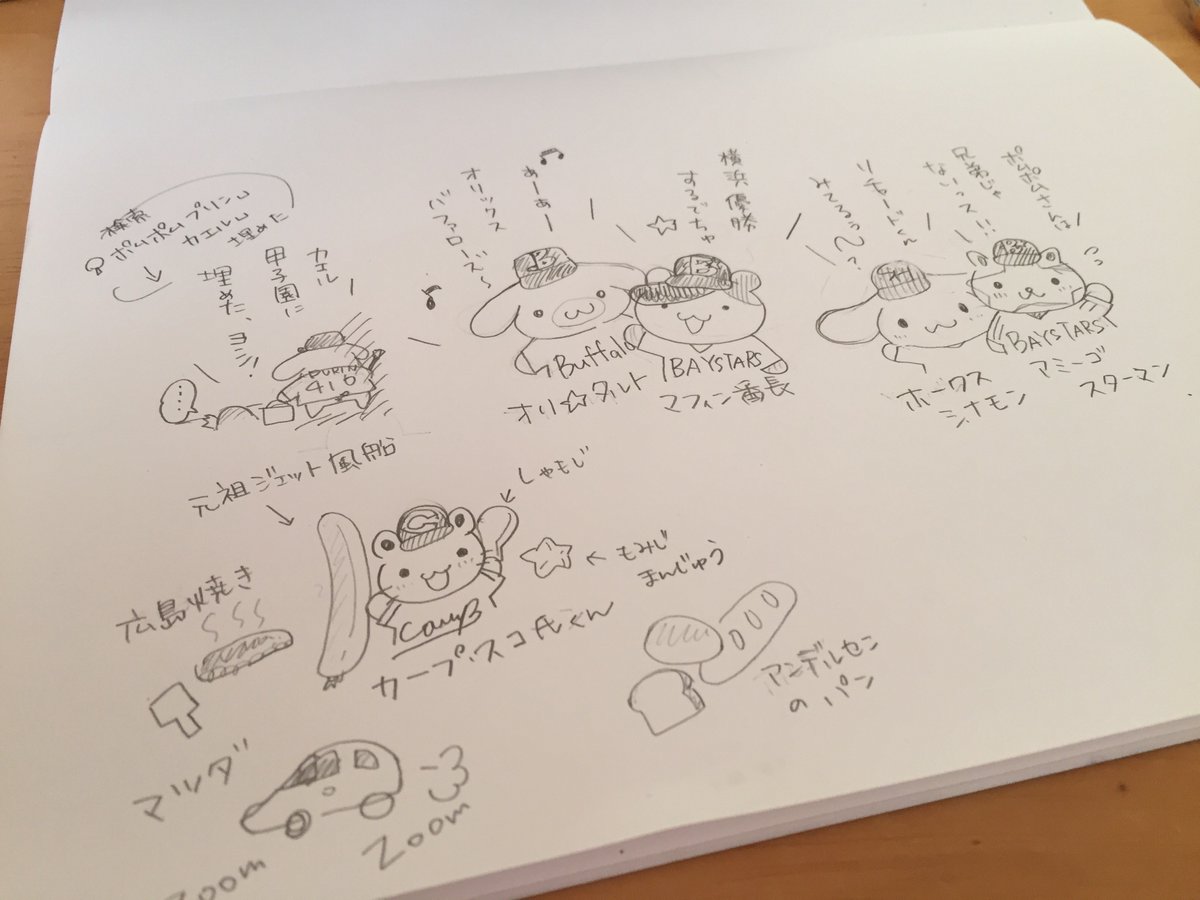 検索
ポムポムプリン␣
カエル␣
埋めた
カエル
甲子園に
埋めた、ヨシ!
PURIN
416
元祖ジェット風船
あーあー
オリックス
バファローズ〜
横浜優勝
するでちゅ
B
B
Buffalo
BAYSTARS
オリ☆タルト
マフィン番長
リチャードくん
みてるぅ〜?
ポムポムさんは
兄弟じゃ
ないっス!!
H
B
BAYSTARS
ホークス
シナモン
アミーゴ
スターマン
しゃもじ
もみじ
まんじゅう
C
Carp
カープ・スコ氏くん
広島焼き
アンデルセン
のパン
マツダ
Zoom
Zoom